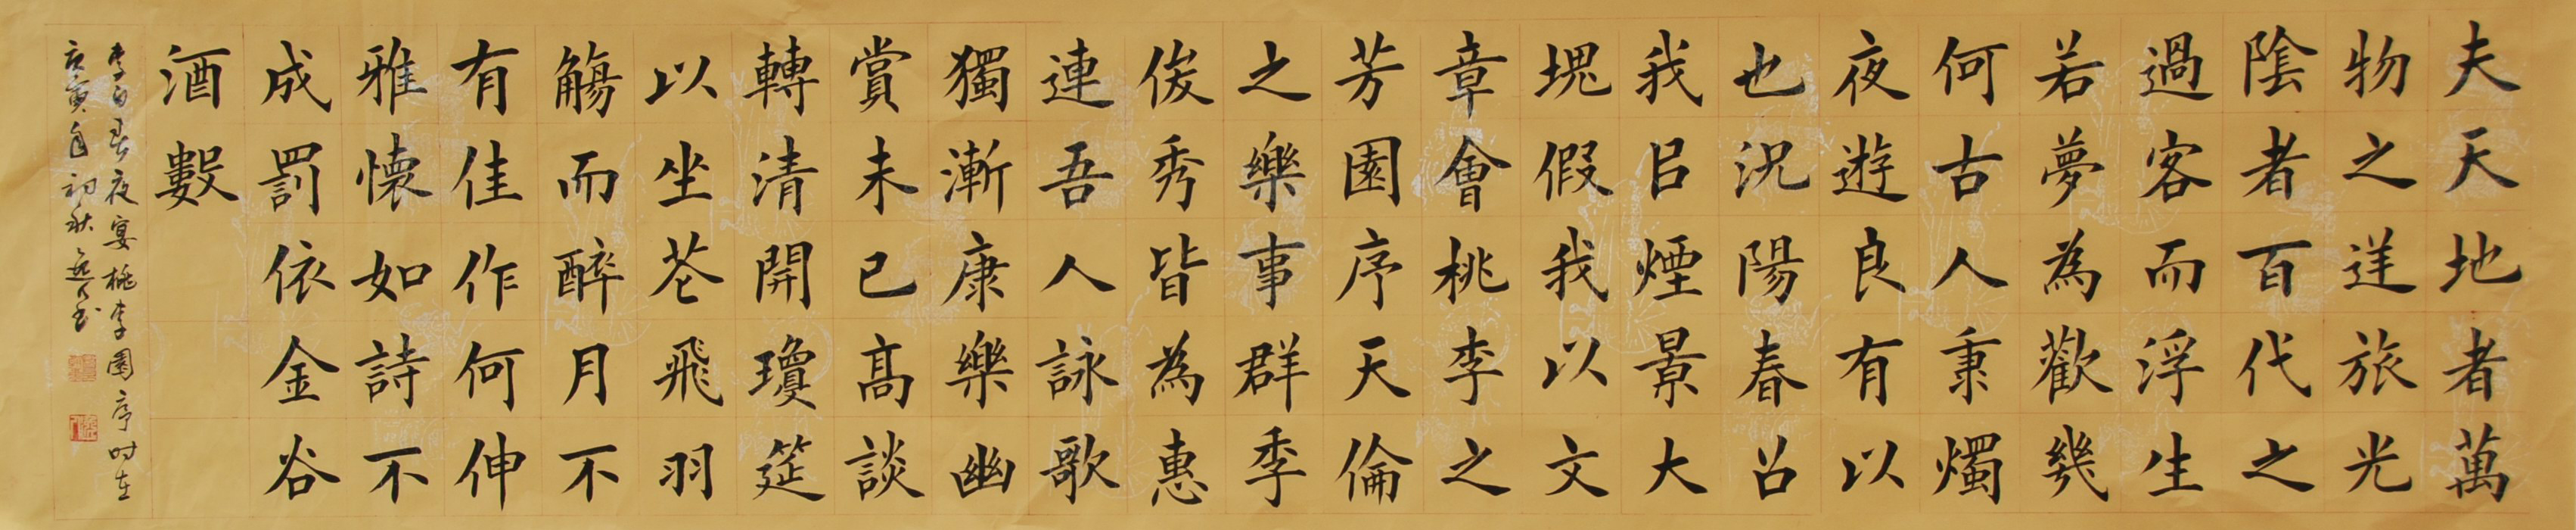 夫天地者萬
物之逆旅光
陰者百代之
過客而浮生
若夢為歡幾
何古人秉燭
夜遊良有以
也況陽春召
我㠯煙景大
塊假我以文
章會桃李之
芳園序天倫
之樂事群季
俊秀皆為惠
連吾人詠歌
獨漸康樂幽
賞未已高談
轉清開瓊筵
以坐花飛羽
觴而醉月不
有佳作何伸
雅懷如詩不
成罰依金谷
酒數
李白春夜宴桃李園序时在
庚寅年初秋